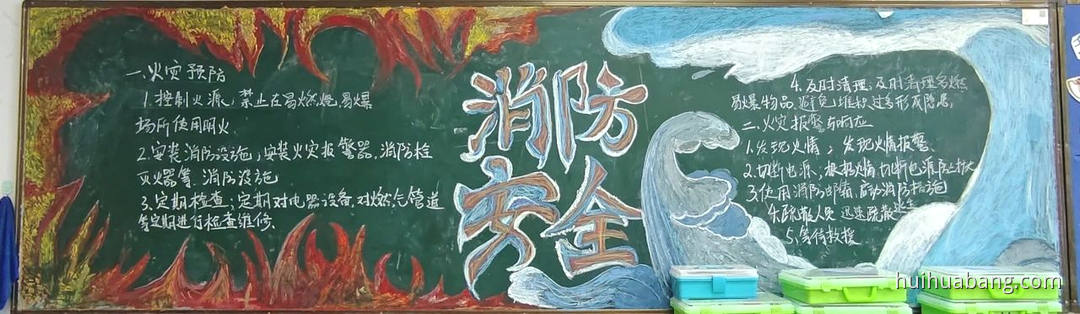 一、火灾预防
1.控制火源，禁止在易燃烧，易爆
场所使用明火.
2.安装消防设施；安装火灾报警器.消防栓
灭火器等.消防设施
3.定期检查；定期对电器设备.对燃气管道
等定期进行检查维修.
消防
安全
4.及时清理，及时清理易燃
易爆物品.避免堆积过多形成隐患.
二、火灾报警与响应
1.发现火情；发现火情报警.
2.切断电源；根据火情切断电源防止扩大
3.使用消防，启动消防设施
4.疏散人员 迅速疏散逃生
5.等待救援
huihuabang.com